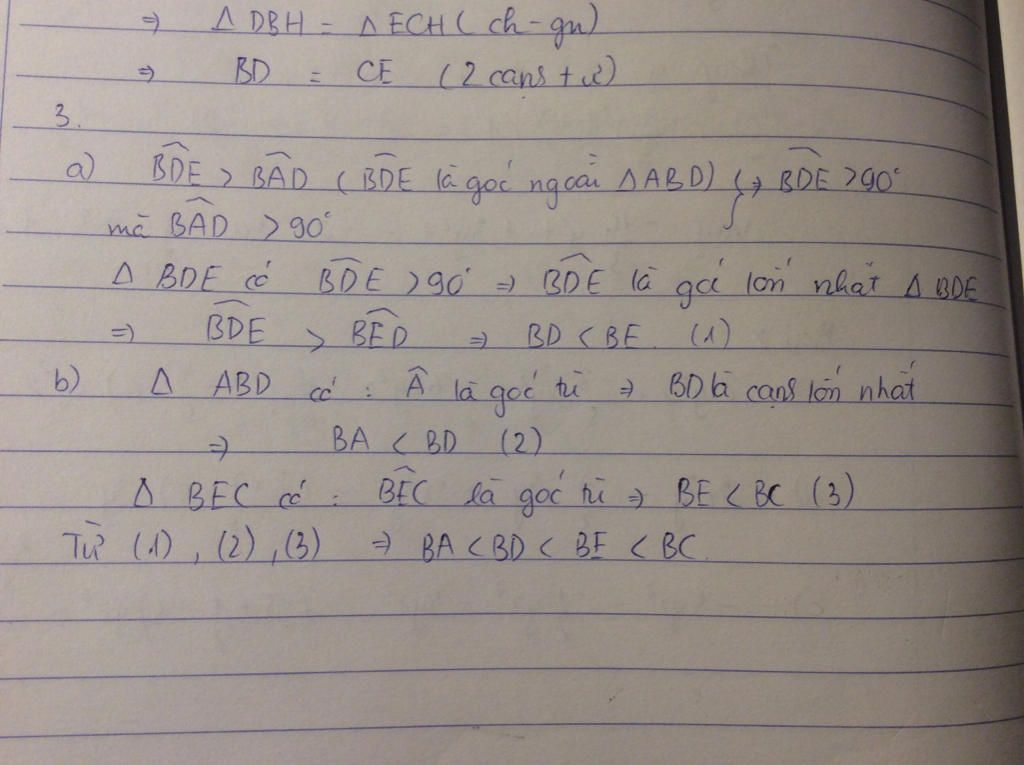 ⇒ Δ DBH = Δ ECH ( ch - gn)
⇒ BD = CE (2 cạnh t.ư)
3.
a) BDE > BAD ( BDE là góc ngoài Δ ABD) } ⇒ BDE > 90°
mà BAD > 90°
Δ BDE có BDE > 90° ⇒ BDE là góc lớn nhất Δ BDE
⇒ BDE > BED ⇒ BD < BE. (1)
b) Δ ABD có : Â là góc tù ⇒ BD là cạnh lớn nhất
⇒ BA < BD (2)
Δ BEC có : BEC là góc tù ⇒ BE < BC (3)
Từ (1) , (2) , (3) ⇒ BA < BD < BE < BC.